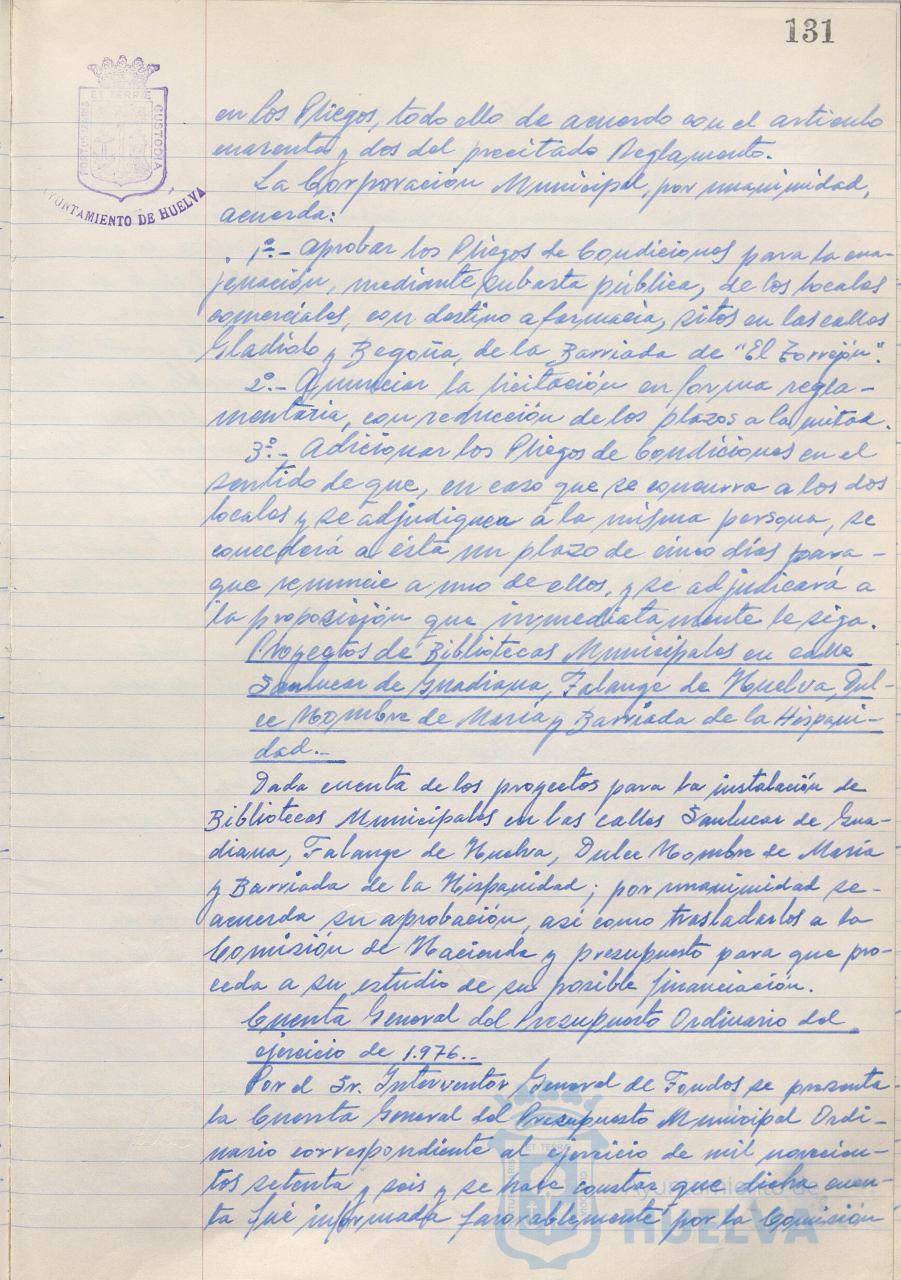 131
ET TERRÆ
CUSTODIA
AYUNTAMIENTO DE HUELVA
en los Pliegos, todo ello de acuerdo con el artículo
cuarenta y dos del precitado Reglamento.
La Corporación Municipal, por unanimidad,
acuerda:
1º.- Aprobar los Pliegos de Condiciones para la ena-
jenación, mediante subasta pública, de los locales
comerciales, con destino a farmacia, sitos en las calles
Gladiolo y Begoña, de la Barriada de "El Torrejón".
2º.- Anunciar la licitación en forma regla-
mentaria, con reducción de los plazos a la mitad.
3º.- Adicionar los Pliegos de Condiciones en el
sentido de que, en caso que se concurra a los dos
locales y se adjudiquen a la misma persona, se
concederá a ésta un plazo de cinco días para-
que renuncie a uno de ellos, y se adjudicará a
la proposición que inmediatamente le siga.
Proyectos de Bibliotecas Municipales en calle
Sanlucar de Guadiana, Falange de Huelva, Dul-
ce Nombre de María y Barriada de la Hispani-
dad.-
Dada cuenta de los proyectos para la instalación de
Bibliotecas Municipales en las calles Sanlucar de Gua-
diana, Falange de Huelva, Dulce Nombre de María
y Barriada de la Hispanidad; por unanimidad se-
acuerda su aprobación, así como trasladarlos a la
Comisión de Hacienda y presupuesto para que pro-
ceda a su estudio de su posible financiación.
Cuenta General del Presupuesto Ordinario del
ejercicio de 1.976.-
Por el Sr. Interventor General de Fondos se presenta
la Cuenta General del Presupuesto Municipal Ordi-
nario correspondiente al ejercicio de mil novecien-
tos setenta y seis y se hace constar que dicha cuen-
ta fué informada favorablemente por la Comisión
Ayuntamiento de
HUELVA